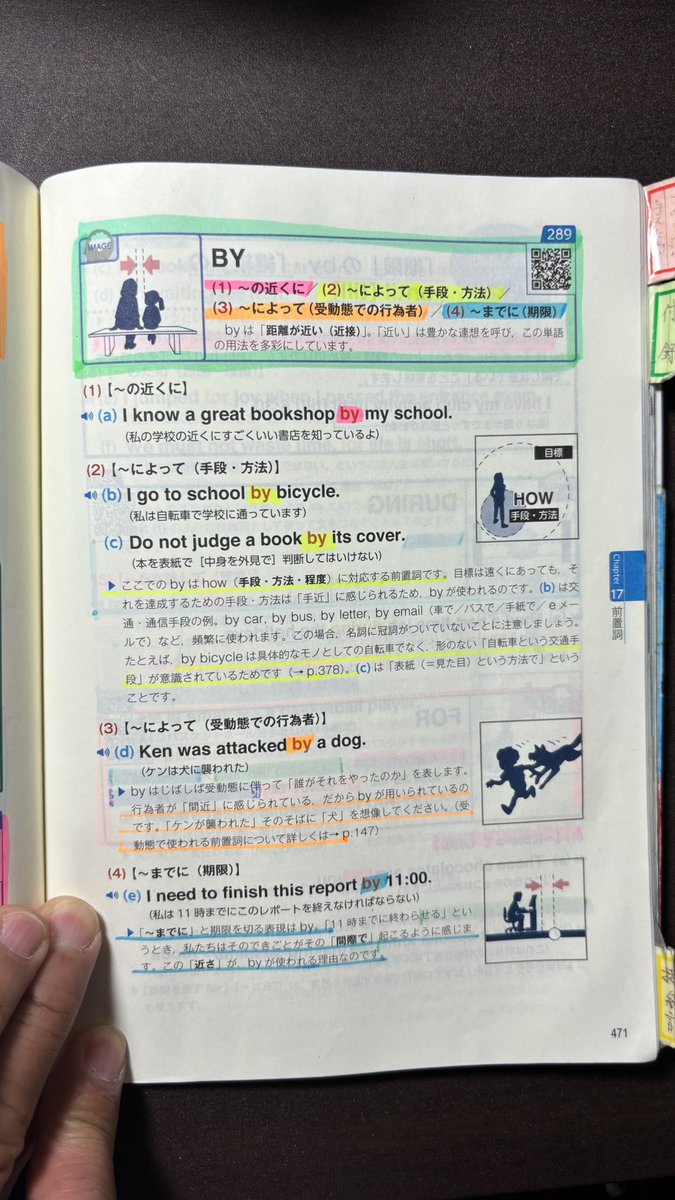 289
IMAGE
BY
(1) 〜の近くに／(2) 〜によって（手段・方法）／
(3) 〜によって（受動態での行為者）／(4) 〜までに（期限）
by は「距離が近い（近接）」。「近い」は豊かな連想を呼び，この単語
の用法を多彩にしています。
(1)【〜の近くに】
(a) I know a great bookshop by my school.
（私の学校の近くにすごくいい書店を知っているよ）
(2)【〜によって（手段・方法）】
(b) I go to school by bicycle.
（私は自転車で学校に通っています）
(c) Do not judge a book by its cover.
（本を表紙で［中身を外見で］判断してはいけない）
目標
HOW
手段・方法
▶ ここでの by は how（手段・方法・程度）に対応する前置詞です。目標は遠くにあっても，そ
れを達成するための手段・方法は「手近」に感じられるため，by が使われるのです。(b) は交
通・通信手段の例。by car, by bus, by letter, by email（車で／バスで／手紙で／ e メー
ルで）など，頻繁に使われます。この場合，名詞に冠詞がついていないことに注意しましょう。
たとえば，by bicycle は具体的なモノとしての自転車でなく，形のない「自転車という交通手
段」が意識されているためです（→ p.378）。(c) は「表紙（＝見た目）という方法で」という
ことです。
(3)【〜によって（受動態での行為者）】
(d) Ken was attacked by a dog.
（ケンは犬に襲われた）
▶ by はしばしば受動態に伴って「誰がそれをやったのか」を表します。
行為者が「間近」に感じられている，だから by が用いられているの
です。「ケンが襲われた」そのそばに「犬」を想像してください。（受
動態で使われる前置詞について詳しくは→ p.147）
(4)【〜までに（期限）】
(e) I need to finish this report by 11:00.
（私は 11 時までにこのレポートを終えなければならない）
▶「〜までに」と期限を切る表現は by。「11 時までに終わらせる」とい
うとき，私たちはそのできごとがその「間際で」起こるように感じま
す。この「近さ」が，by が使われる理由なのです。
Chapter
17
前置詞
471
付
録